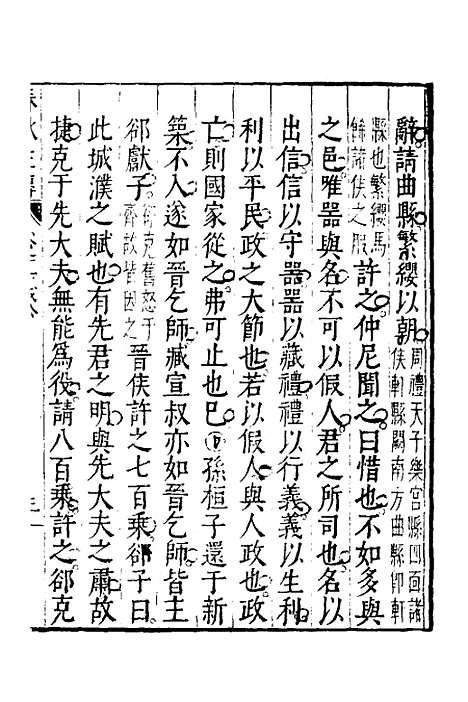 辭請曲縣繁纓以朝周禮天子樂宮縣四面諸侯軒縣闕南方曲縣卽軒
縣也繁纓馬餙諸侯之服許之仲尼聞之曰惜也不如多與
之邑唯器與名不可以假人君之所司也名以
出信信以守器器以藏禮禮以行義義以生利
利以平民政之大節也若以假人與人政也政
亡則國家從之弗可止也已孫桓子還于新
築不入遂如晉乞師臧宣叔亦如晉乞師皆主
郤獻子郤克舊怒于齊故皆因之晉侯許之七百乘郤子曰
此城濮之賦也有先君之明與先大夫之肅故
捷克于先大夫無能爲役請八百乘許之郤克